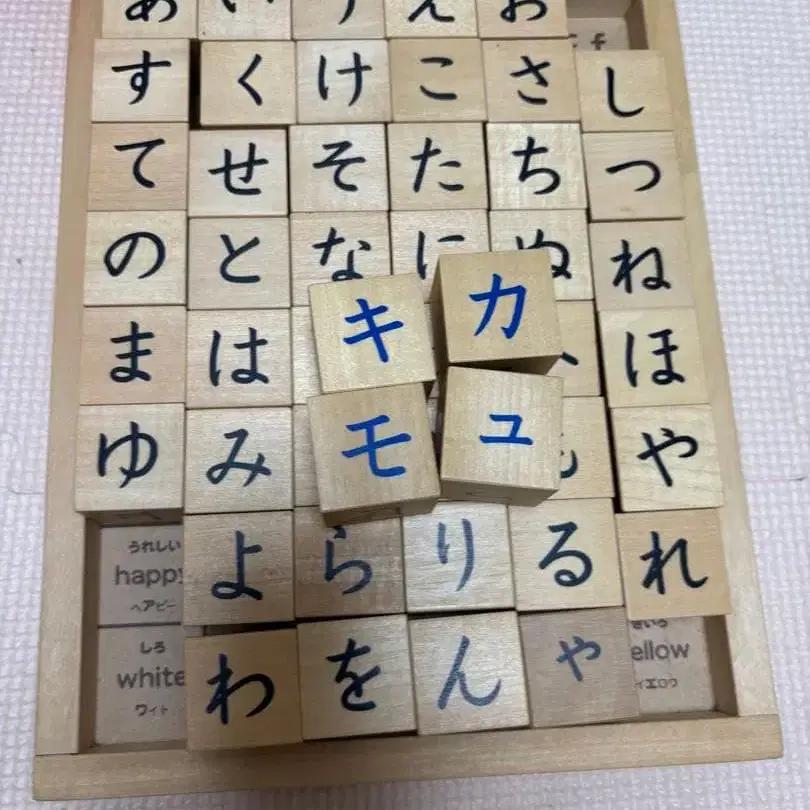 あ い う え お
す く け こ さ し
て せ そ た ち つ
の と な に ぬ ね
ま は キ カ ほ
ゆ み モ ュ や
よ ら り る れ
うれしい
happy
ヘアピー
わ を ん ゃ
しろ
white
ワイト